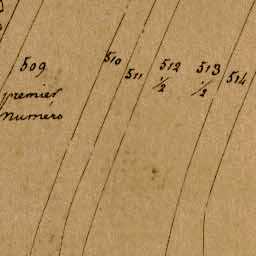 509
premier
numéro
510
511
512
1/2
513
1/2
514